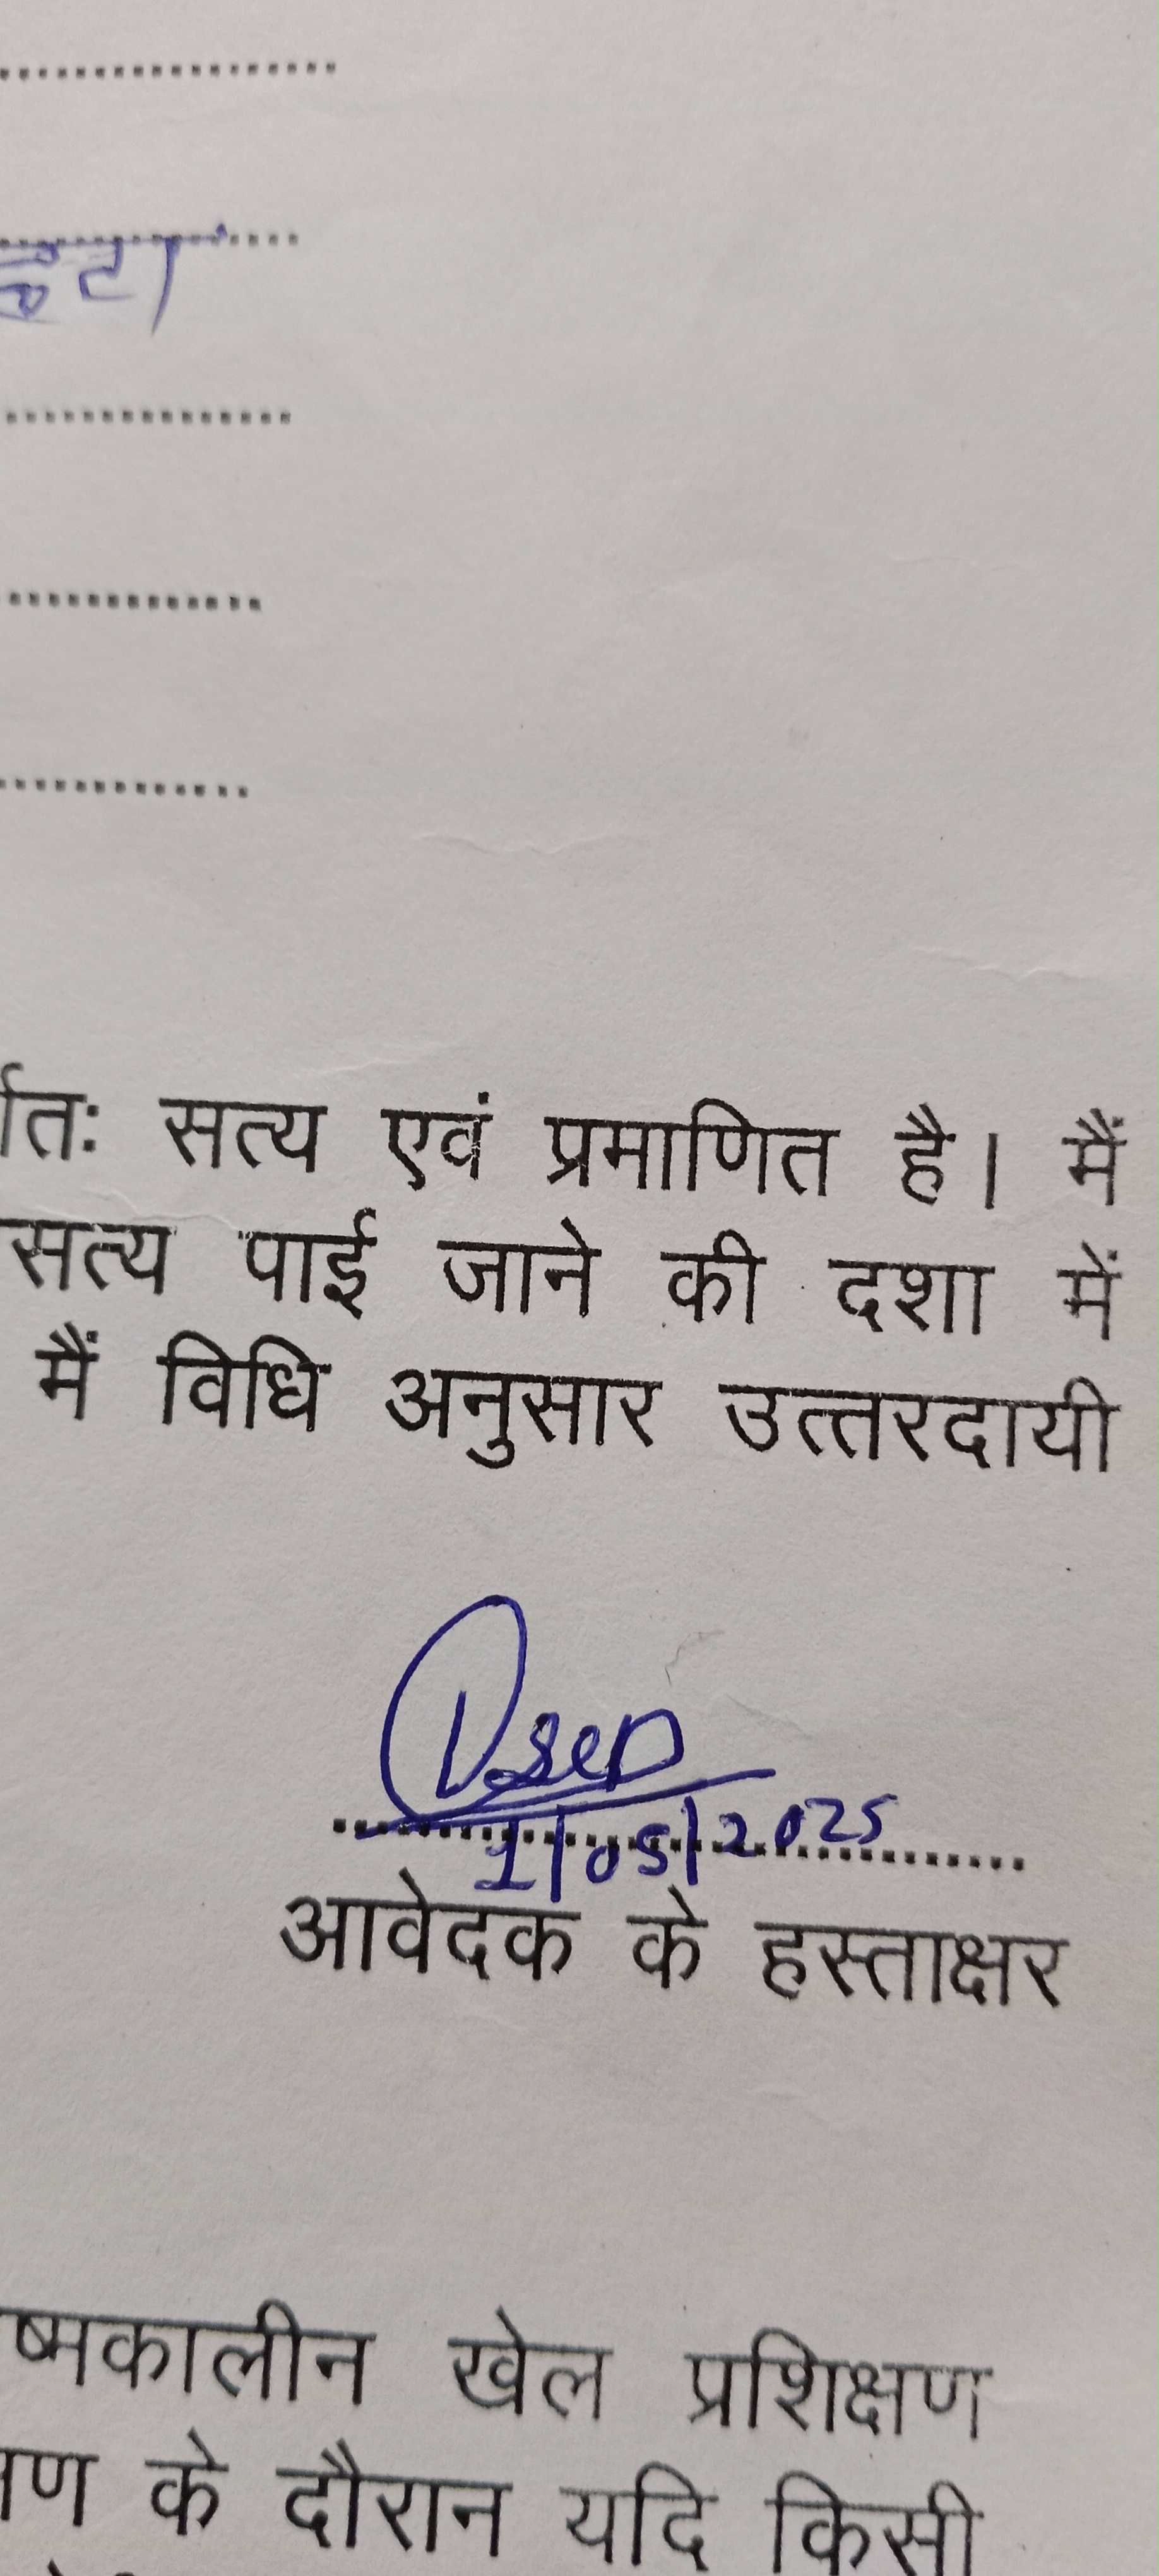 र्वतः सत्य एवं प्रमाणित है। मैं
सत्य पाई जाने की दशा में
मैं विधि अनुसार उत्तरदायी
1/05/2025
आवेदक के हस्ताक्षर
ष्मकालीन खेल प्रशिक्षण
के दौरान यदि किसी